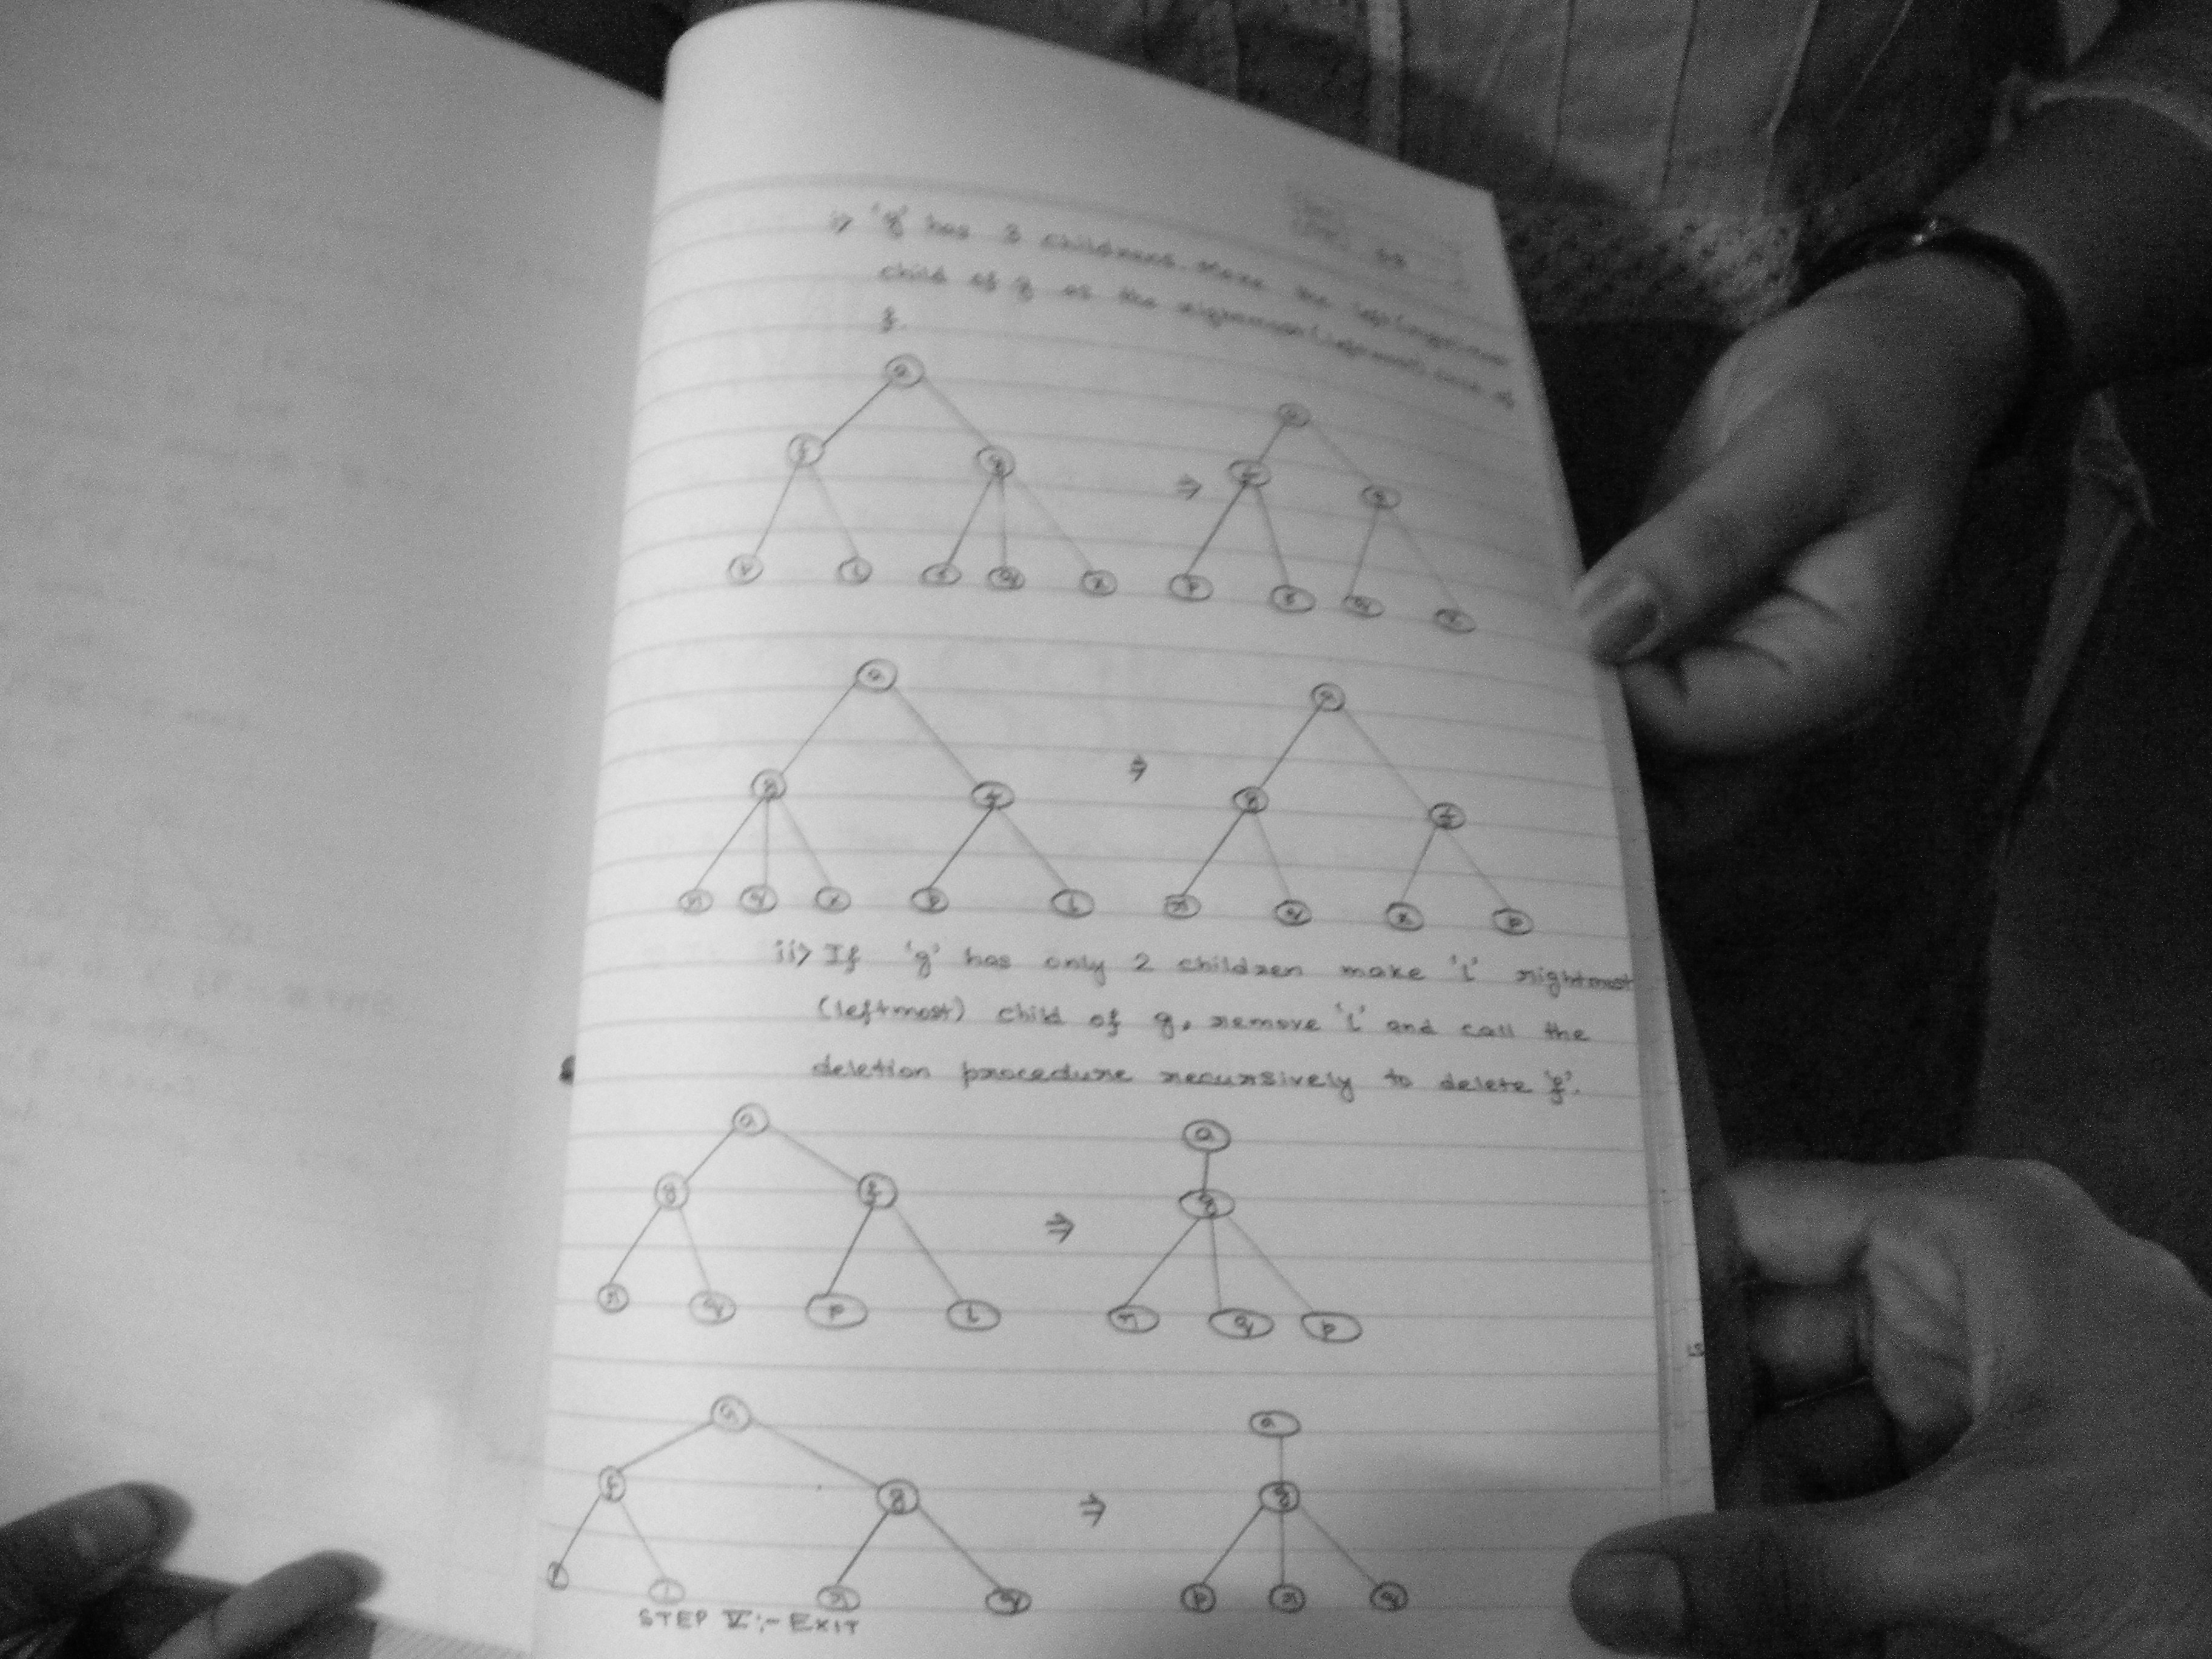 i> 'g' has 3 childrens. Make the left(right)most
child of g as the rightmost (leftmost) child of
f.
a a
f g f g
p l r q x p r q x
a a
g f g f
r q x p l r q x p
ii> If 'g' has only 2 children make 'l' rightmost
(leftmost) child of g, remove 'l' and call the
deletion procedure recursively to delete 'f'.
a a
g f g
r q p l r q p
a a
f g g
p l r q p r q
STEP V:- EXIT